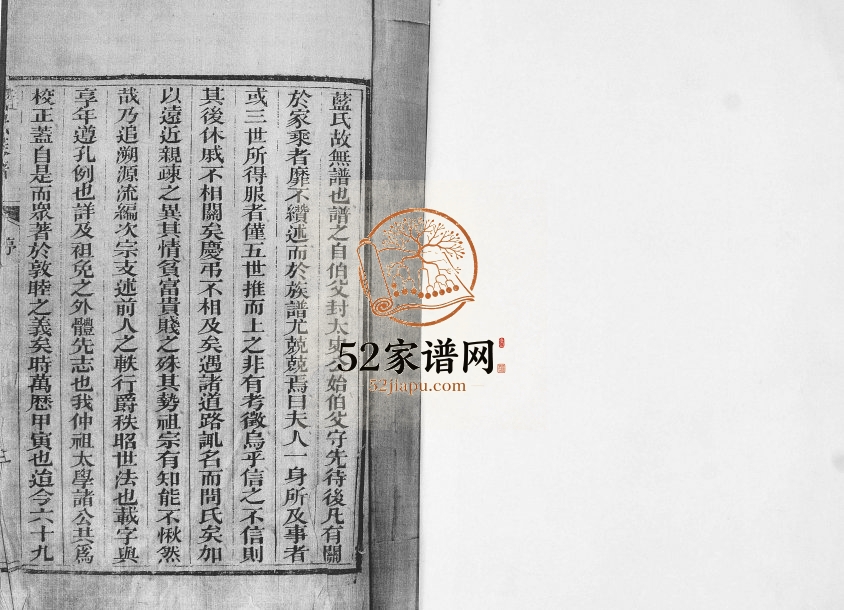 藍氏故無譜也譜之自伯父封太史公始伯父守先待後凡有關
於家乘者靡不纘述而於族譜尤兢兢焉曰夫人一身所及事者
或三世所得服者僅五世推而上之非有考徵烏乎信之不信則
其後休戚不相關矣慶弔不相及矣遇諸道路訊名而問氏矣加
以遠近親疎之異其情貧富貴賤之殊其勢祖宗有知能不愀然
哉乃追溯源流編次宗支述前人之軼行爵秩昭世法也載字與
享年遵孔例也詳及祖免之外體先志也我仲祖太學諸公共為
校正蓋自是而眾著於敦睦之義矣時萬歷甲寅也迨今六十九
序
52家谱网
52jiapu.com